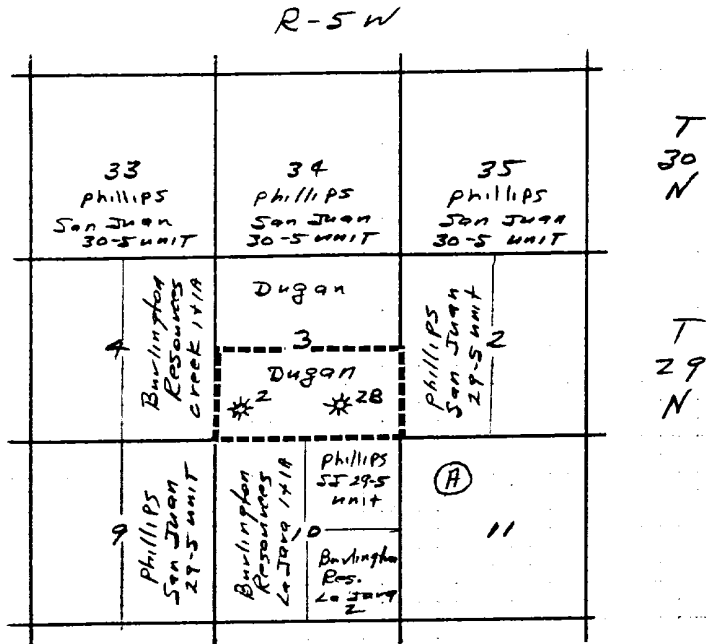 R-5W
T
30
N
33
Phillips
San Juan
30-5 unit
34
Phillips
San Juan
30-5 unit
35
Phillips
San Juan
30-5 unit
T
29
N
4
Burlington
Resources
Creek 1+1A
Dugan
3
Dugan
2
2B
Phillips
San Juan
29-5 unit
2
9
Phillips
San Juan
29-5 unit
Burlington
Resources
La Jara 1+1A
10
Phillips
SJ 29-5
unit
Burlington
Res.
La Jara
2
A
11